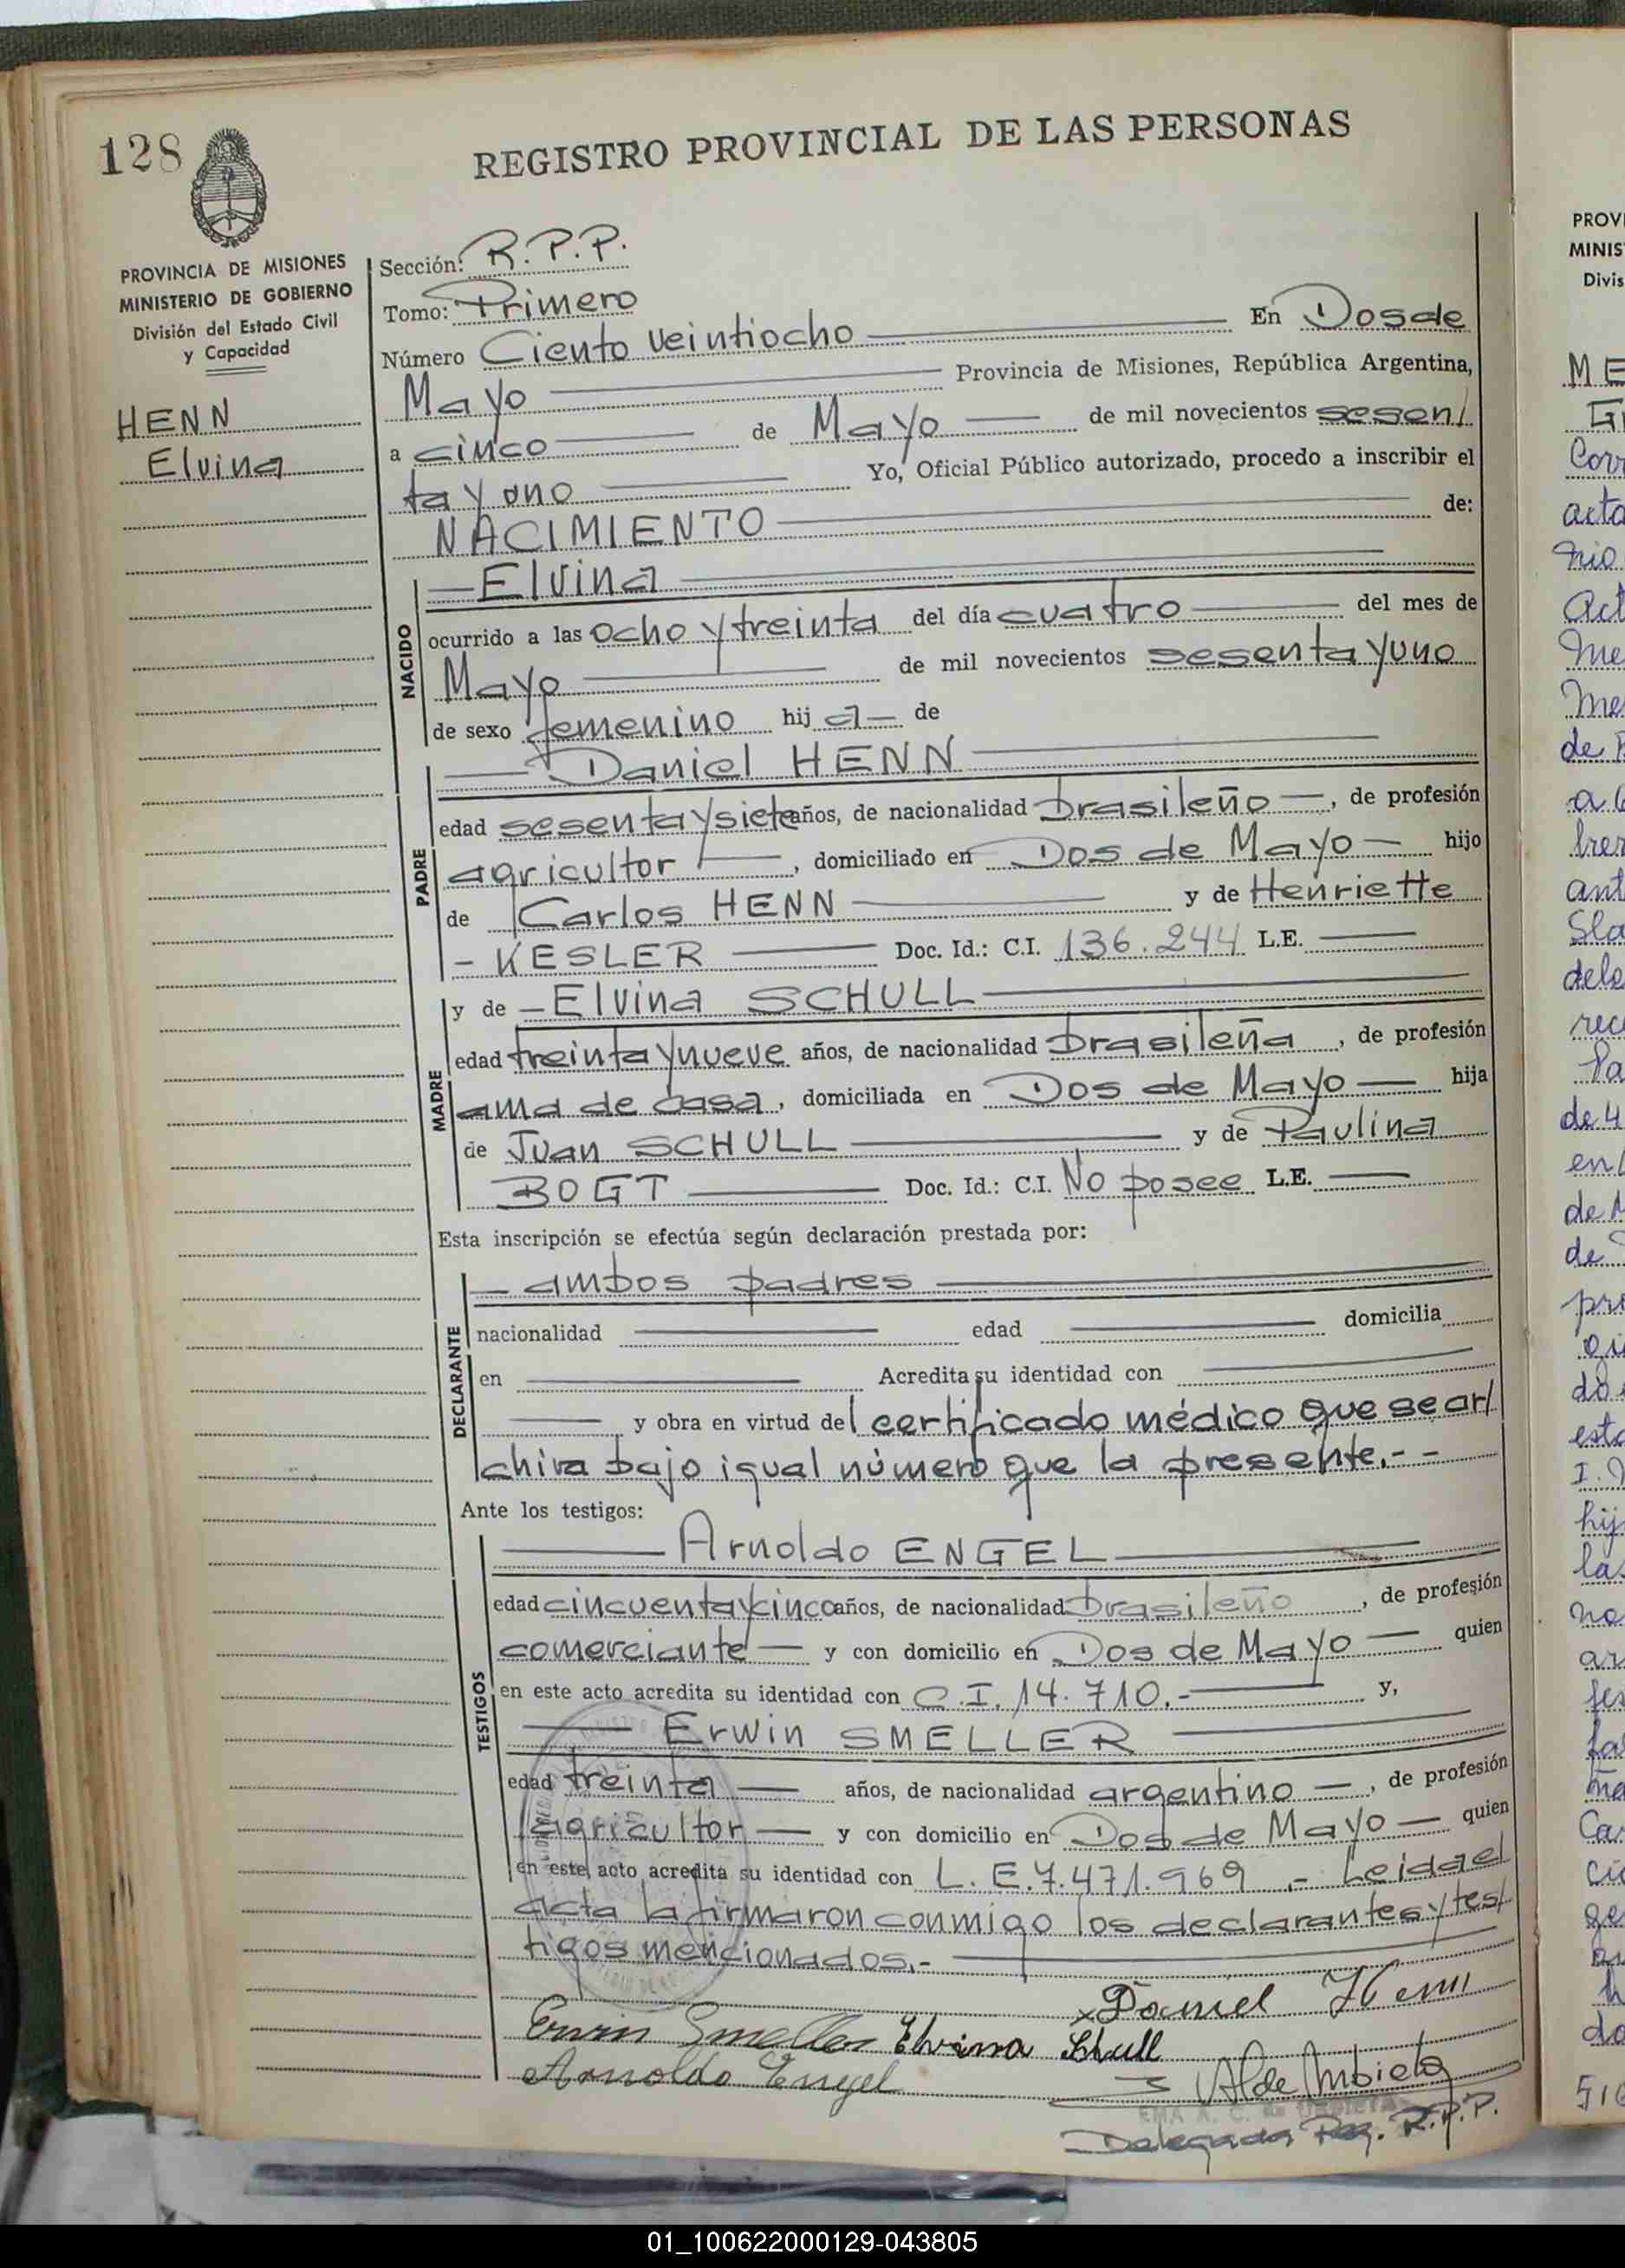 128
REGISTRO PROVINCIAL DE LAS PERSONAS
PROVINCIA DE MISIONES
MINISTERIO DE GOBIERNO
División del Estado Civil
y Capacidad
HENN
Elvina
Sección: R.P.P.
Tomo: Primero
Número Ciento veintiocho En Dos de
Mayo Provincia de Misiones, República Argentina,
a cinco de Mayo de mil novecientos sesen/
ta y uno Yo, Oficial Público autorizado, procedo a inscribir el
NACIMIENTO de:
NACIDO
Elvina
ocurrido a las ocho y treinta del día cuatro del mes de
Mayo de mil novecientos sesenta y uno
de sexo femenino hija de
PADRE
Daniel HENN
edad sesenta y siete años, de nacionalidad brasileño, de profesión
agricultor, domiciliado en Dos de Mayo hijo
de Carlos HENN y de Henriette
KESLER Doc. Id.: C.I. 136.244 L.E.
MADRE
y de Elvina SCHULL
edad treinta y nueve años, de nacionalidad brasileña, de profesión
ama de casa, domiciliada en Dos de Mayo hija
de Juan SCHULL y de Paulina
BOGT Doc. Id.: C.I. No posee L.E.
Esta inscripción se efectúa según declaración prestada por:
DECLARANTE
ambos padres
nacionalidad edad domicilia
en Acredita su identidad con
y obra en virtud del certificado médico que se ar/
chiva bajo igual número que la presente.--
Ante los testigos:
TESTIGOS
Arnoldo ENGEL
edad cincuenta y cinco años, de nacionalidad brasileño, de profesión
comerciante y con domicilio en Dos de Mayo quien
en este acto acredita su identidad con C.I. 14.710.- y,
Erwin SMELLER
edad treinta años, de nacionalidad argentino, de profesión
agricultor y con domicilio en Dos de Mayo quien
en este acto acredita su identidad con L.E. 7.471.969.- Leida el
acta la firmaron conmigo los declarantes y tes/
tigos mencionados.-
x Daniel Henn
Erwin Smeller Elvina Schull
Arnoldo Engel
Delegada Reg. R.P.P.
PROVI
MINIS
Divis
01_100622000129-043805